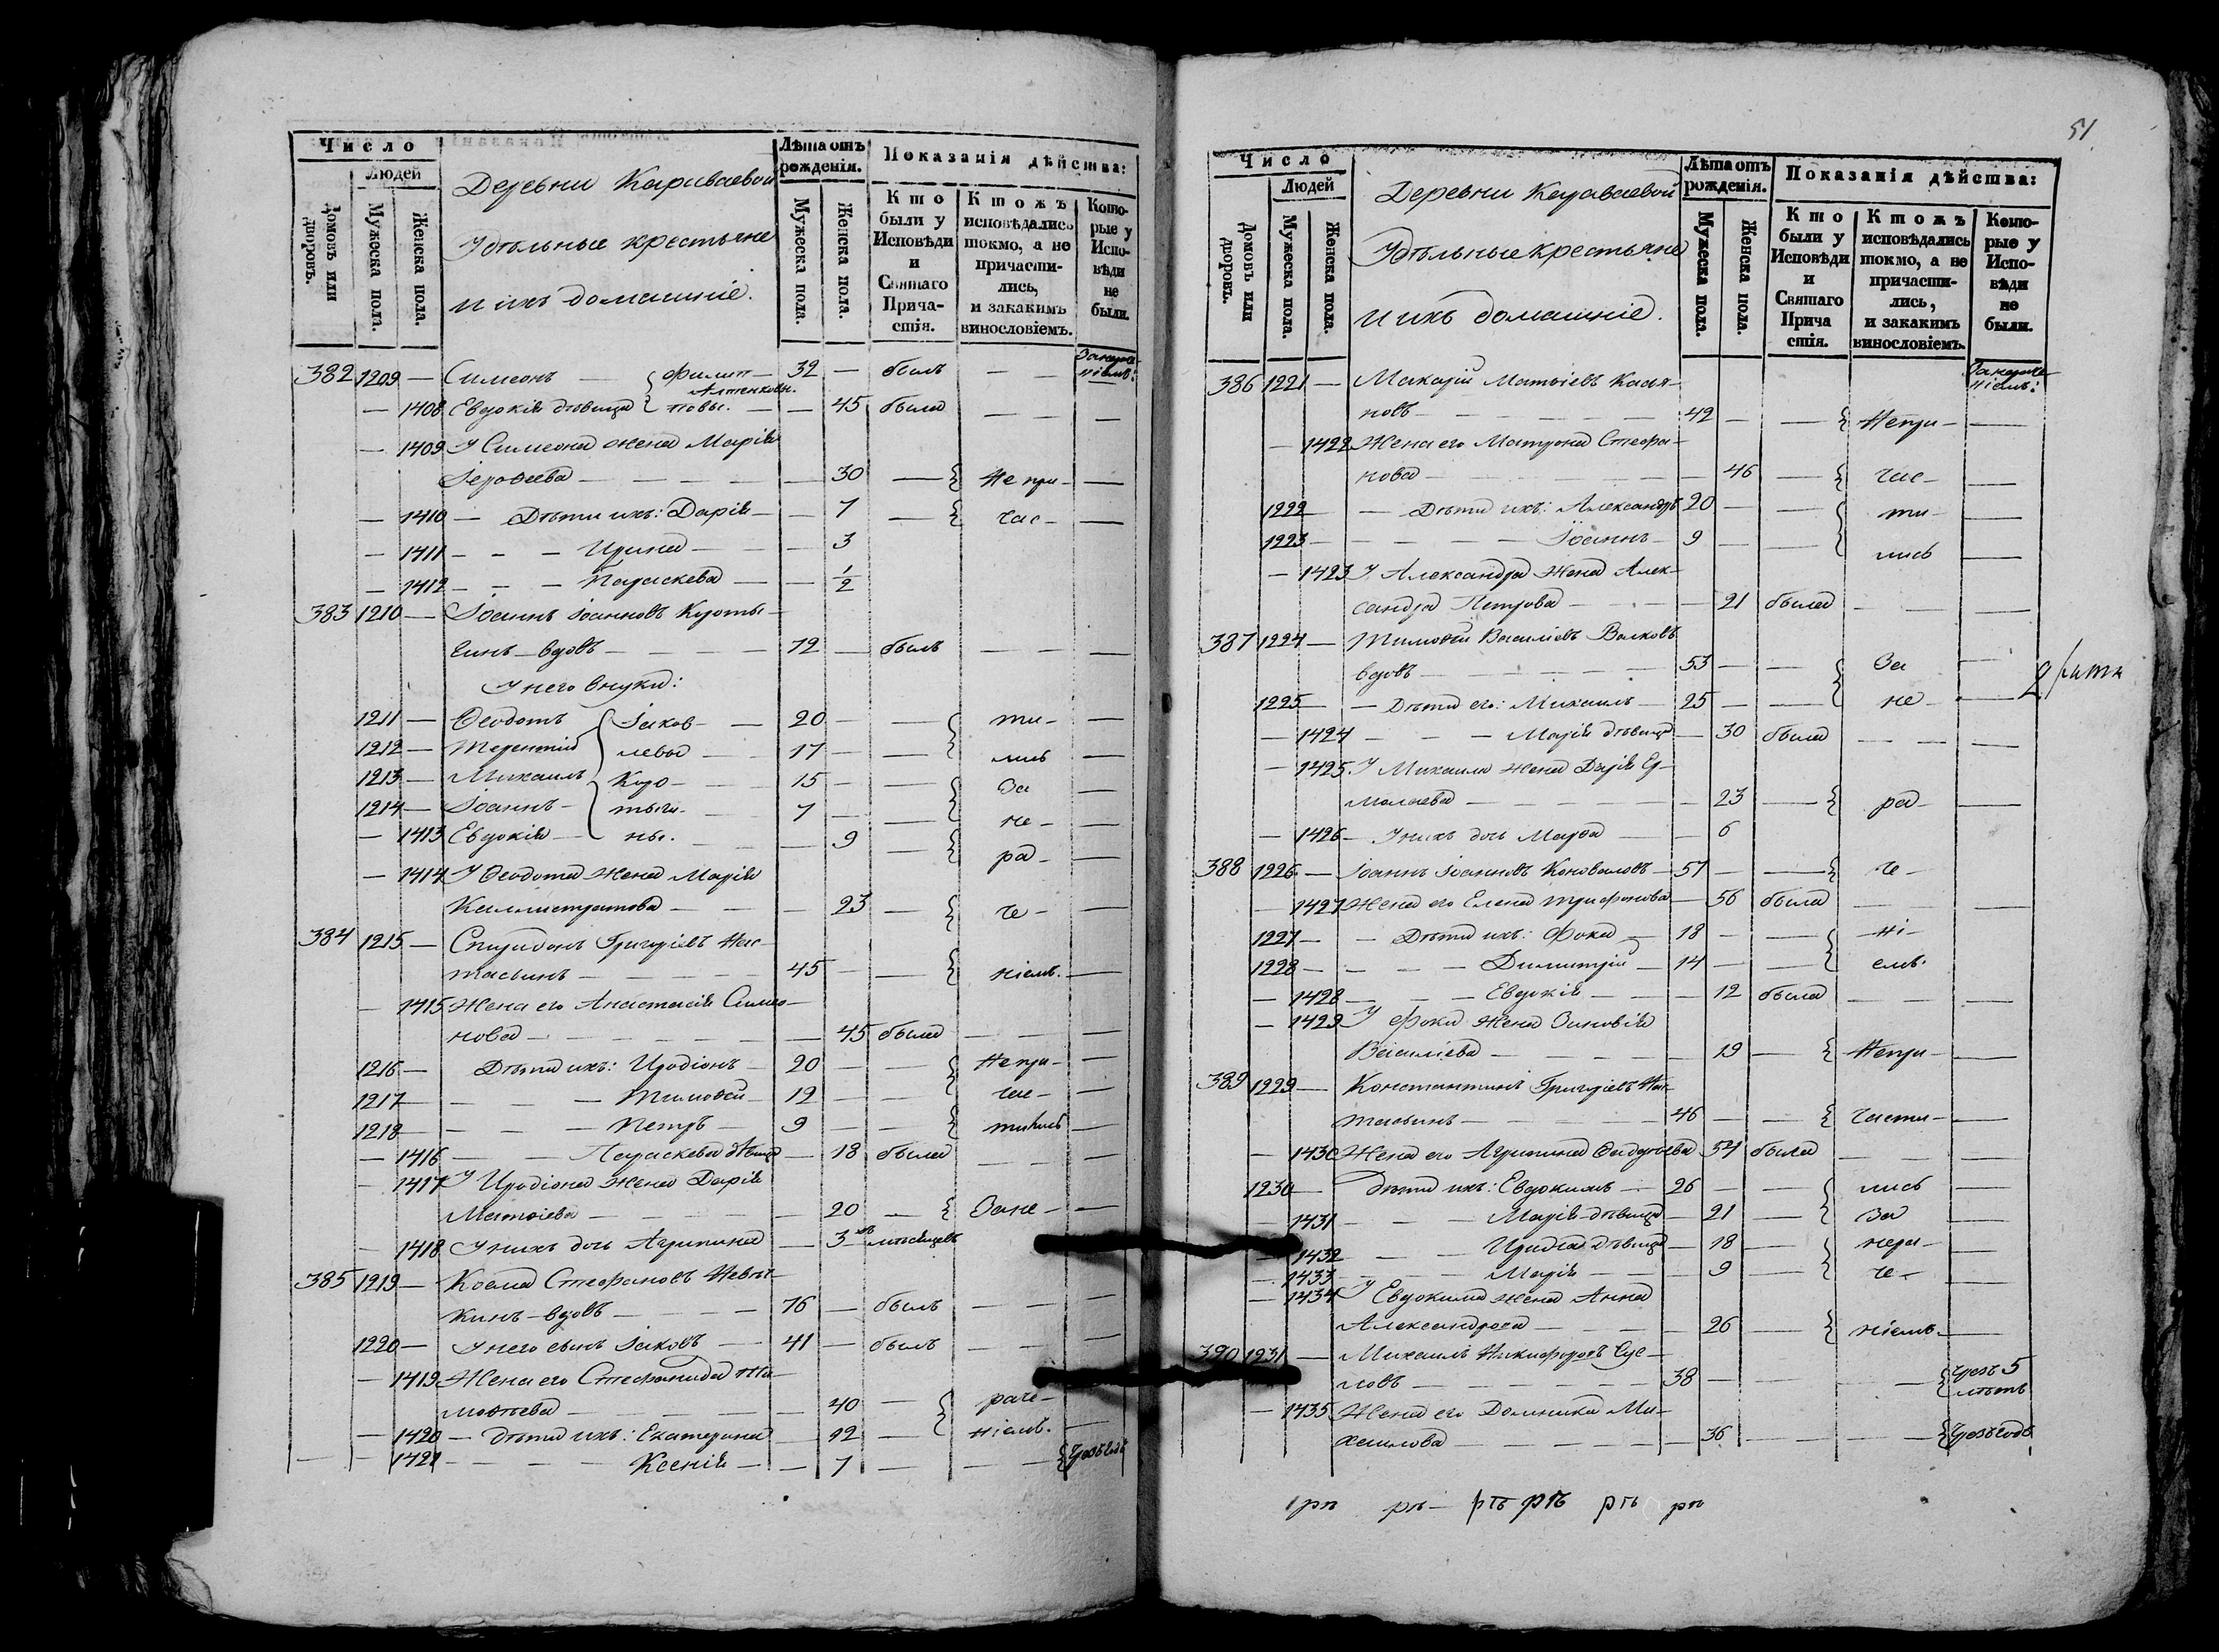 Число
Людей
Домовъ или дворовъ.
Мужеска пола.
Женска пола.
Деревни Караваевой
Удѣльные крестьяне
и ихъ домашніе.
Лѣта отъ рожденія.
Мужеска пола.
Женска пола.
Показанія дѣйства:
Кто были у Исповѣди и Святаго Прича-стія.
Ктожъ исповѣдались токмо, а не причасти-лись, и закакимъ винословіемъ.
Кото-рые у Испо-вѣди не были.
382 1209 — Симеонъ — Филип— 32 — былъ — —
— 1408 Евдокія дѣвица повы. — — 45 была — — —
— 1409 У Симеона жена Марія
Іероѳеева — — — — — 30 — Не при— —
— 1410 — Дѣти ихъ: Дарія — — 7 — час— —
— 1411 — — — Ирина — — 3
— 1412 — — — Параскева — — 1/2
383 1210 — Іоаннъ Іоанновъ Короты—
гинъ — вдовъ — — — — 72 — былъ — — —
У него внуки:
1211 — Ѳеодотъ Іаков— — 20 — — ти— —
1212 — Терентій левы — 17 — — лись —
1213 — Михаилъ Коро— — 15 — — За —
1214 — Іоаннъ — тыги— — 7 — — не— —
— 1413 Евдокія — ны. — — 9 — ра— —
— 1414 У Ѳеодота жена Марія
Каллистратова — — — 23 — че— —
384 1215 — Спиридонъ Григоріевъ Нас—
тасьинъ — — — — 45 — — ніемъ. —
— 1415 Жена его Анастасія Симео—
нова — — — — — 45 была — — —
1216 — Дѣти ихъ: Иродіонъ — 20 — — Непри— —
1217 — — — — Тимоѳей — 12 — — час— —
1218 — — — — Петръ — 9 — — тились —
— 1416 — — — Параскева дѣвица — 18 была — — —
— 1417 У Иродіона жена Дарія
Матѳіева — — — — — 20 — Зане— —
— 1418 У нихъ дочь Агрипина — 3 мѣсяцевъ
385 1219 — Косма Стефановъ
кинъ — вдовъ — — — 76 — былъ — — —
1220 — У него сынъ Іаковъ — 41 — былъ — — —
— 1419 Жена его Стефанида Ти—
моѳеева — — — — 40 — раче—
— 1420 — Дѣти ихъ: Екатерина — 12 — ніемъ. —
— — 1421 — — — — Ксенія — — 7 — — —
51
Число
Людей
Домовъ или дворовъ.
Мужеска пола.
Женска пола.
Деревни Караваевой
Удѣльные крестьяне
и ихъ домашніе.
Лѣта отъ рожденія.
Мужеска пола.
Женска пола.
Показанія дѣйства:
Кто были у Исповѣди и Святаго Прича стія.
Ктожъ исповѣдались токмо, а не причасти-лись, и закакимъ винословіемъ.
Кото-рые у Испо-вѣди не были.
386 1221 — Макарій Матѳіевъ Касья—
новъ — — — — 42 — — Непри— —
— 1422 Жена его Матрона Стефа—
нова — — — — — 46 — час— —
1222 — — Дѣти ихъ: Александръ 20 — — ти— —
1223 — — — — — Іоаннъ — 9 — — лись —
— 1423 У Александра жена Алек—
сандра Петрова — — — 21 была — — —
387 1224 — Тимоѳей Василіевъ Волковъ
вдовъ — — — — — 53 — — За —
1225 — — Дѣти его: Михаилъ — 25 — — не— —
— 1424 — — — Марія дѣвица — 30 была — — —
— 1425 У Михаила жена Дарія Ер—
молаева — — — — — 23 — ра— —
— 1426 — У нихъ дочь Марѳа — — 6
388 1226 — Іоаннъ Іоанновъ Коноваловъ — 57 — — че—
— 1427 Жена его Елена Трифонова — 56 была — — —
1227 — — Дѣти ихъ: Фока — 18 — — —ні—
1228 — — — — Димитрій — 14 — — емъ.
— 1428 — — — Евдокія — — — 12 была — — —
— 1429 У Фоки жена Зиновія
Василіева — — — — — 19 — Непри— —
389 1229 — Константинъ Григоріевъ Нас—
тасьинъ — — — — 46 — — части— —
— 1430 Жена его Агрипина 54 была — — —
1230 — Дѣти ихъ: Евдокимъ — 26 — — лись —
— 1431 — — — Марія дѣвица — 21 — за —
— 1432 — — — Ирина дѣвица — 18 — нера— —
— 1433 — — — Марія — — 9 — че— —
— 1434 У Евдокима жена Анна
Александрова — — — — 26 — ніемъ. —
390 1231 — Михаилъ Никифоровъ Сус—
ловъ — — — — — 38 — — — чрезъ 5 лѣтъ
— 1435 Жена его Домника Ми—
хаилова — — — — — 36 — —